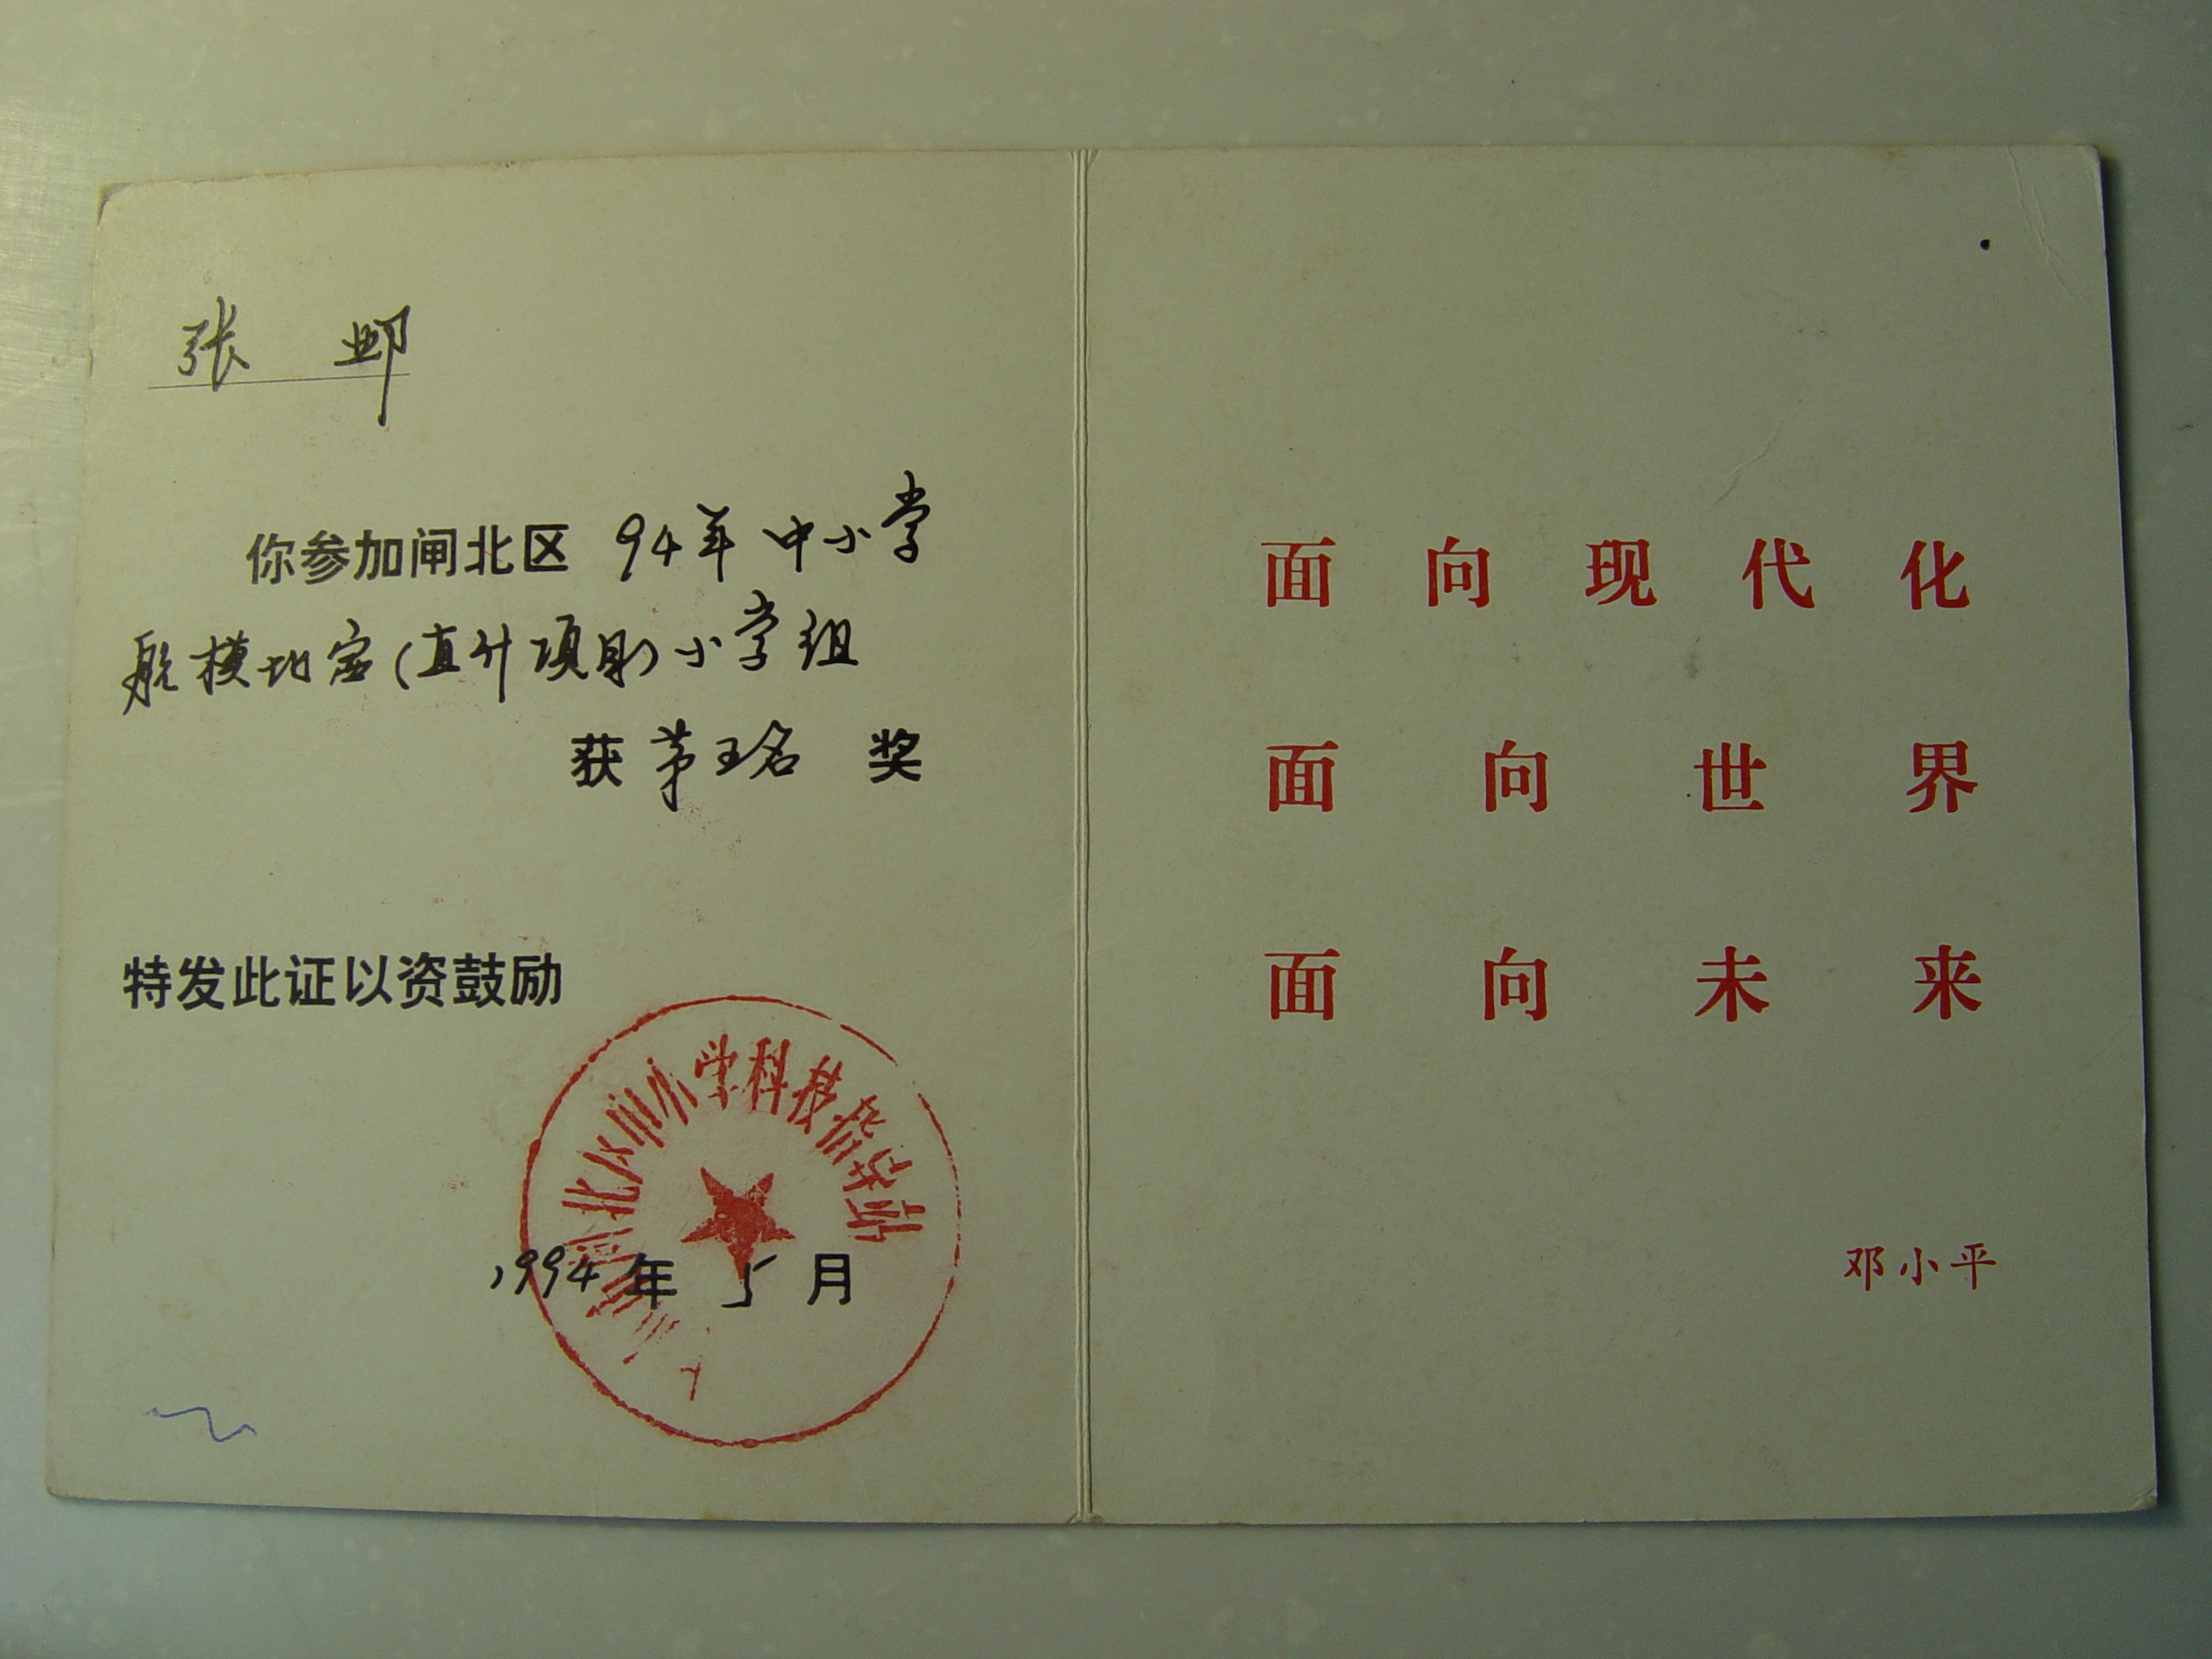 张 邺
你参加闸北区 94年中小学
航模比赛(直升项目)小学组
获 第五名 奖
特发此证以资鼓励
北区中小学科技指导站
1994 年 5 月
面向现代化
面向世界
面向未来
邓小平